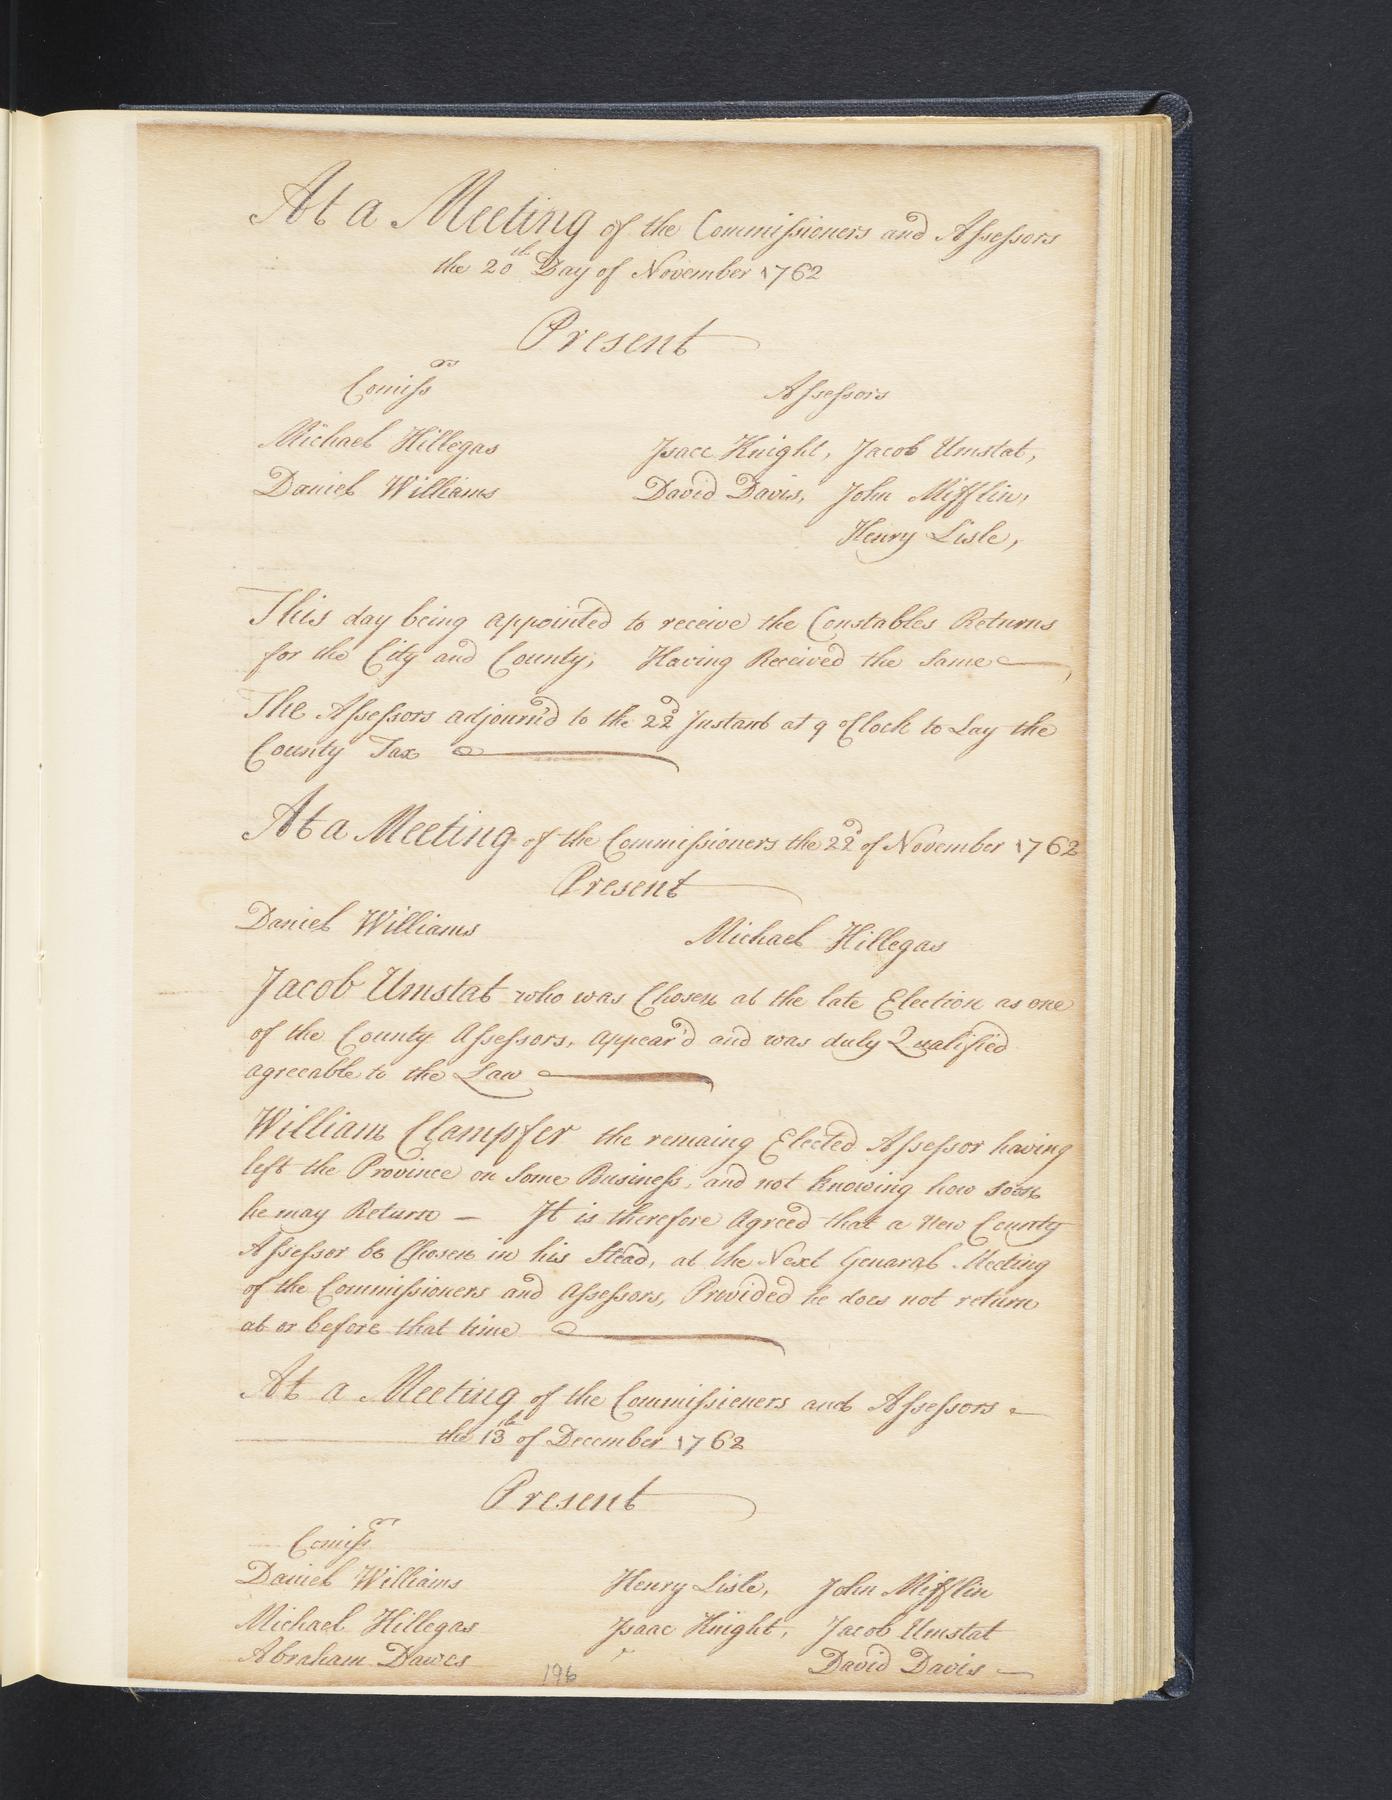 At a Meeting of the Commissioners and Assessors
the 20th Day of November 1762
Present
Comissrs
Assessors
Michael Hillegas
Isacc Knight, Jacob Umstat,
Daniel Williams
David Davis, John Mifflin,
Henry Lisle,
This day being appointed to receive the Constables Returns
for the City and County, Having Received the Same
The Assessors adjourn'd to the 22d Instant at 9 oClock to Lay the
County Tax
At a Meeting of the Commissioners the 22d of November 1762
Present
Daniel Williams
Michael Hillegas
Jacob Umstat who was Chosen at the late Election as one
of the County Assessors, appear'd and was duly Qualified
agreeable to the Law
William Clampffer the remaing Elected Assessor having
left the Province on Some Business, and not knowing how soon
he may Return — It is therefore Agreed that a New County
Assessor be Chosen in his Stead, at the Next Genaral Meeting
of the Commissioners and Assessors, Provided he does not return
at or before that time
At a Meeting of the Commissioners and Assessors
the 13th of December 1762
Present
Comissrs
Daniel Williams
Henry Lisle, John Mifflin
Michael Hillegas
Isaac Knight, Jacob Umstat
Abraham Dawes
David Davis
196